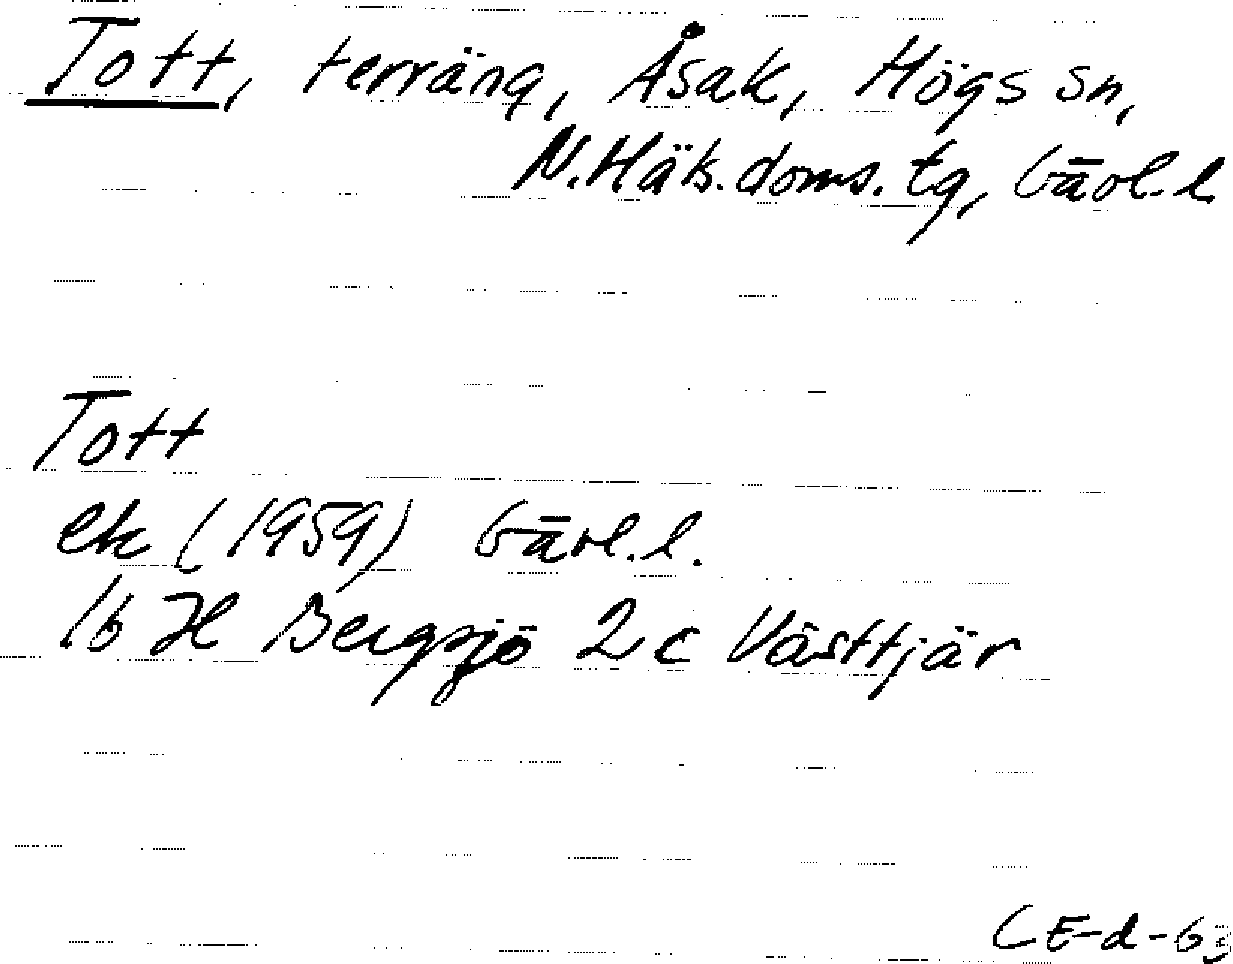 Tott, terräng, Åsak, Högs sn,
N. Häls. doms. tg, Gävl. l.
Tott
ek (1959) Gävl. l.
16 H Bergsjö 2 c Västtjär
CE-d-63